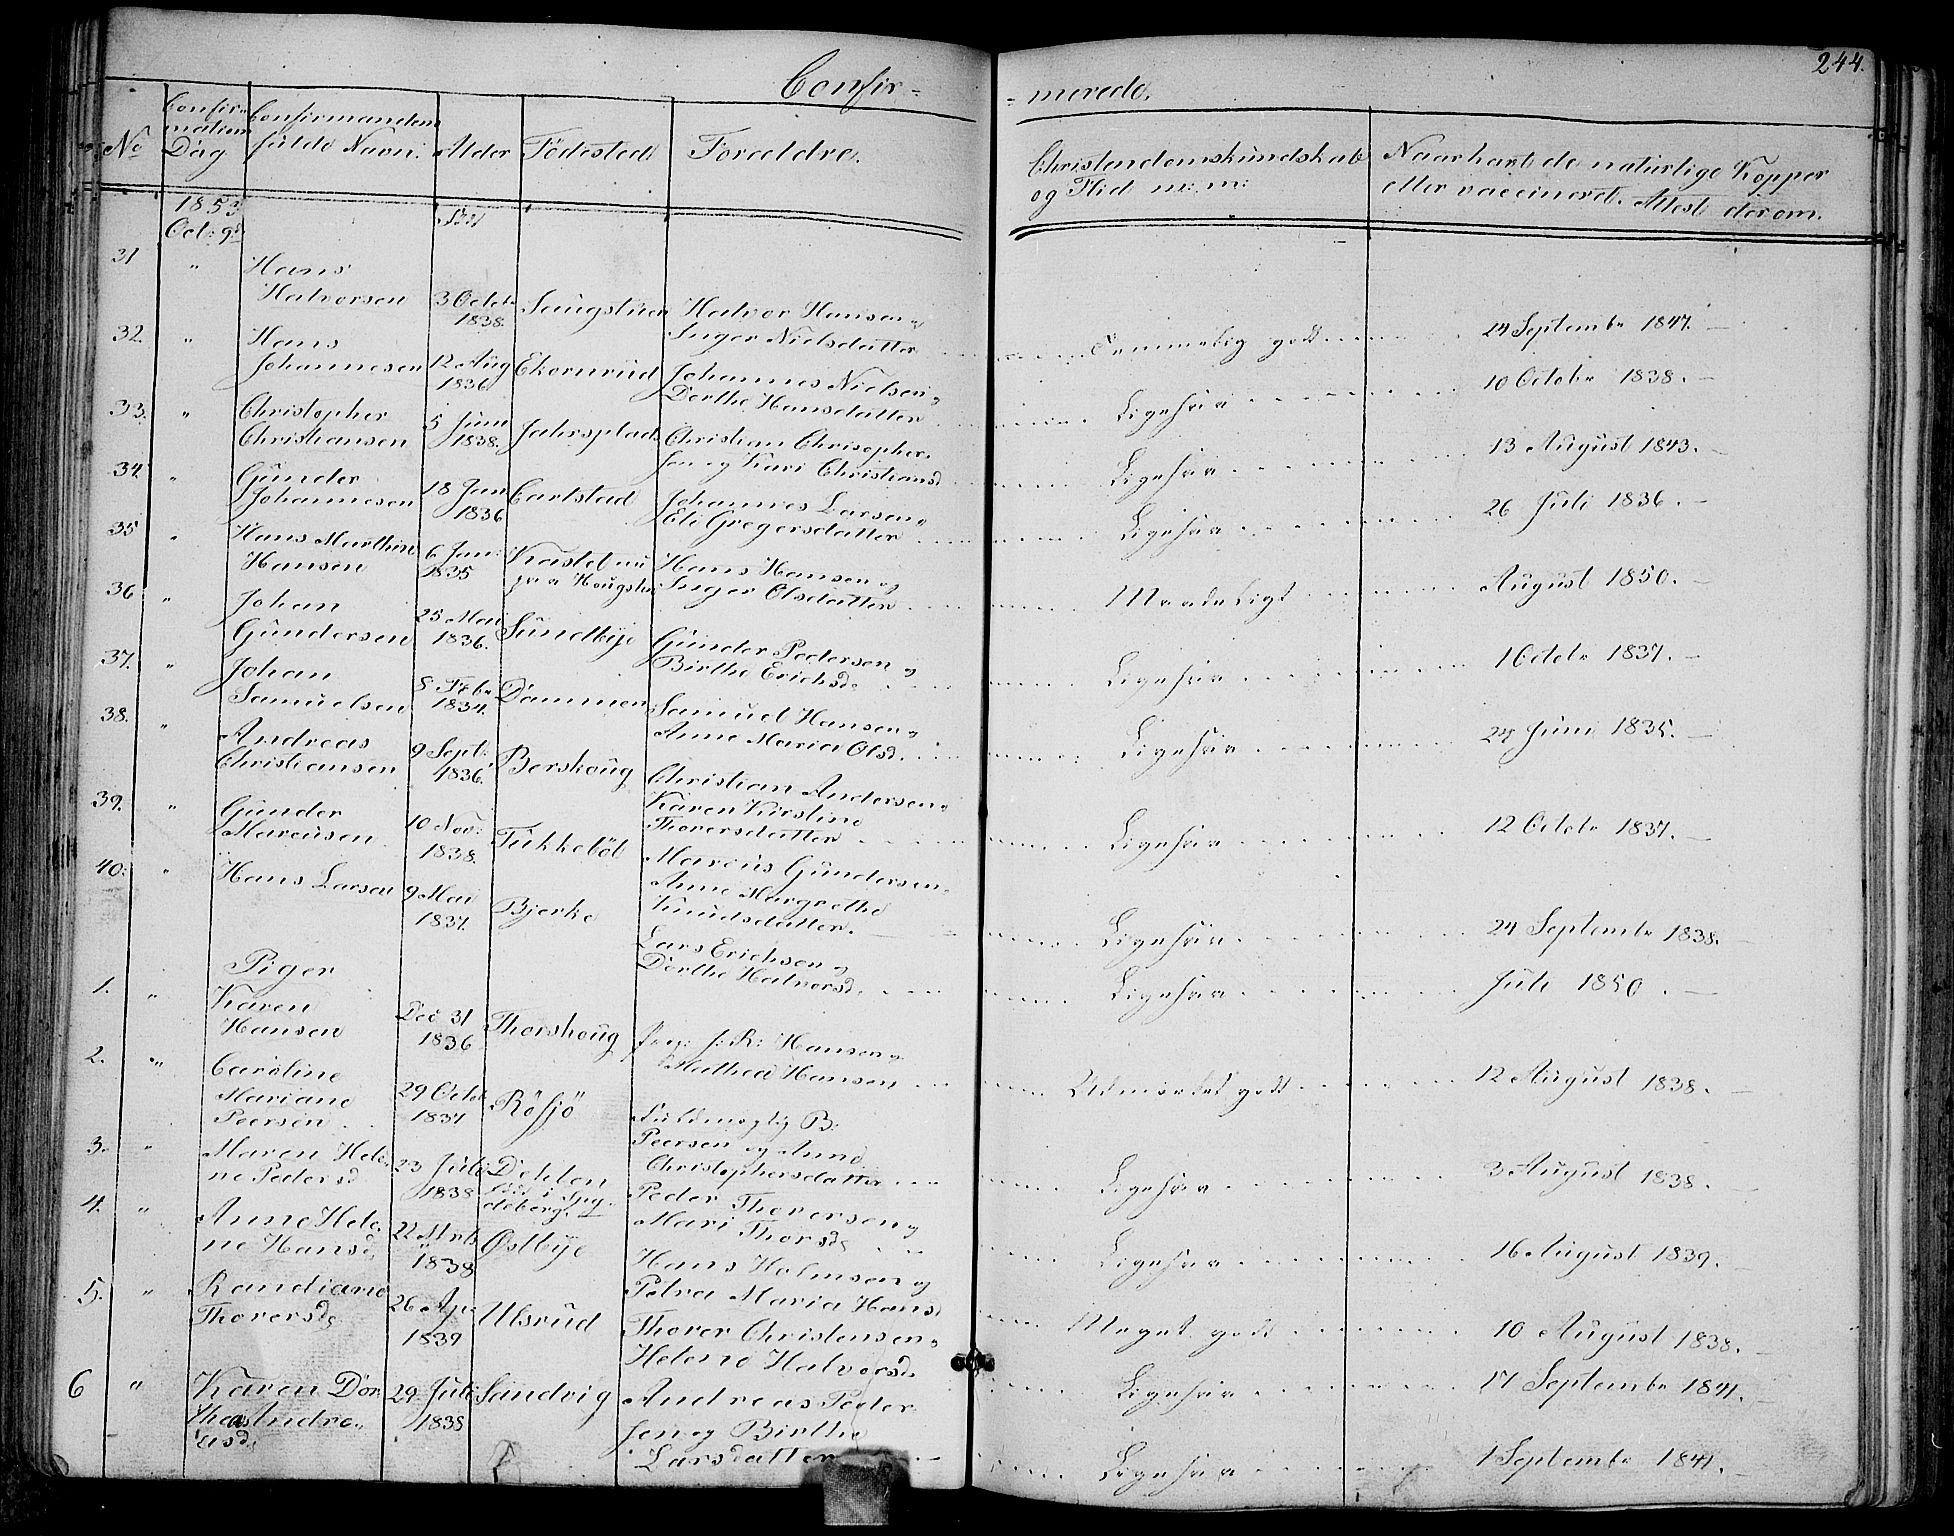 244.
Confir=
=merede.
No
Confir=
mations
Dag
Confirmandens
fulde Navn.
Alder
Födested
Forældre.
Christendomskundskab
og Flid m: m:
Naar havt de naturlige Kopper
eller vaccineret. Attest derom.
1853
Oct: 9de
31 " Hans
Halvorsen 3 Octob
1838. Haugstuen Halvor Hansen og
Inger Nielsdatter Temmelig godt 24 Septembr 1847.
32. " Hans
Johannesen 12 Aug
1836 Ekornrud Johannes Nielsen og
Dorthe Hansdatter Ligesaa 10 Octobr 1838.
33. " Christopher
Christiansen 5 Juni
1838. Jahrsplads Christian Chrisopher-
sen og Kari Christiansd Ligesaa 13 August 1843.
34. " Gunder
Johannesen 18 Jan
1836 Carlstad Johannes Larsen og
Eli Gregersdatter Ligesaa 26 Juli 1836.
35 " Hans Marthin
Hansen 6 Jan:
1835 Hans Hansen og
Inger Olsdatter Maadeligt August 1850.
36 " Johan
Gundersen 25 Mai
1836. Sundbye Gunder Pedersen og
Birthe Erichsd. Ligesaa 1 Octobr 1837.
37. " Johan
Samuelsen 8 Febr
1834. Dammen Samuel Hansen og
Anne Maria Olsd. Ligesaa 24 Juni 1835.
38. " Andreas
Christiansen 9 Sept:
1836. Borskoug Christian Andersen og
Karen Kirstine
Thorersdatter Ligesaa 12 Octobr 1837.
39. " Gunder
Marcusen 10 Nov:
1838. Tukkebøl Marcus Gundersen
Anne Margrethe
Knudsdatter. Ligesaa 24 Septembr 1838.
40: " Hans Larsen 9 Mai
1837. Bjerke Lars Erichsen og
Dorthe Halvorsd. Ligesaa Juli 1850.
Piger
1. " Karen
Hansen Dec 31
1836 Thorshoug Hansen og
Mathea Hansen Udmærket godt 12 August 1838.
2. " Caroline
Mariane
Peersen 29 Octob
1837 Rösjö Fuldmægtig B:
Peersen og Anne
Christophersdatter Ligesaa 3 August 1838.
3. " Maren Hele-
ne Pedersd 23 Juli
1838 Dehlen
födt i Spy-
deberg. Peder Thorersen og
Mari Thorsd. Ligesaa 16 August 1839.
4. " Anne Hele-
ne Hansd. 22 Mrts
1838 Østbye Hans Holmsen og
Petra Maria Hansd Meget godt 10 August 1838.
5. " Randiane
Thorersd. 26 Ap.
1839 Ulsrud Thorer Christensen og
Helene Halvorsd. Ligesaa 17 Septembr 1841.
6 " Karen Dor-
thea Andre-
asd. 29 Juli
1838 Sandvig Andreas Peder
sen og Birthe
Larsdatter Ligesaa 1 Septembr 1841.